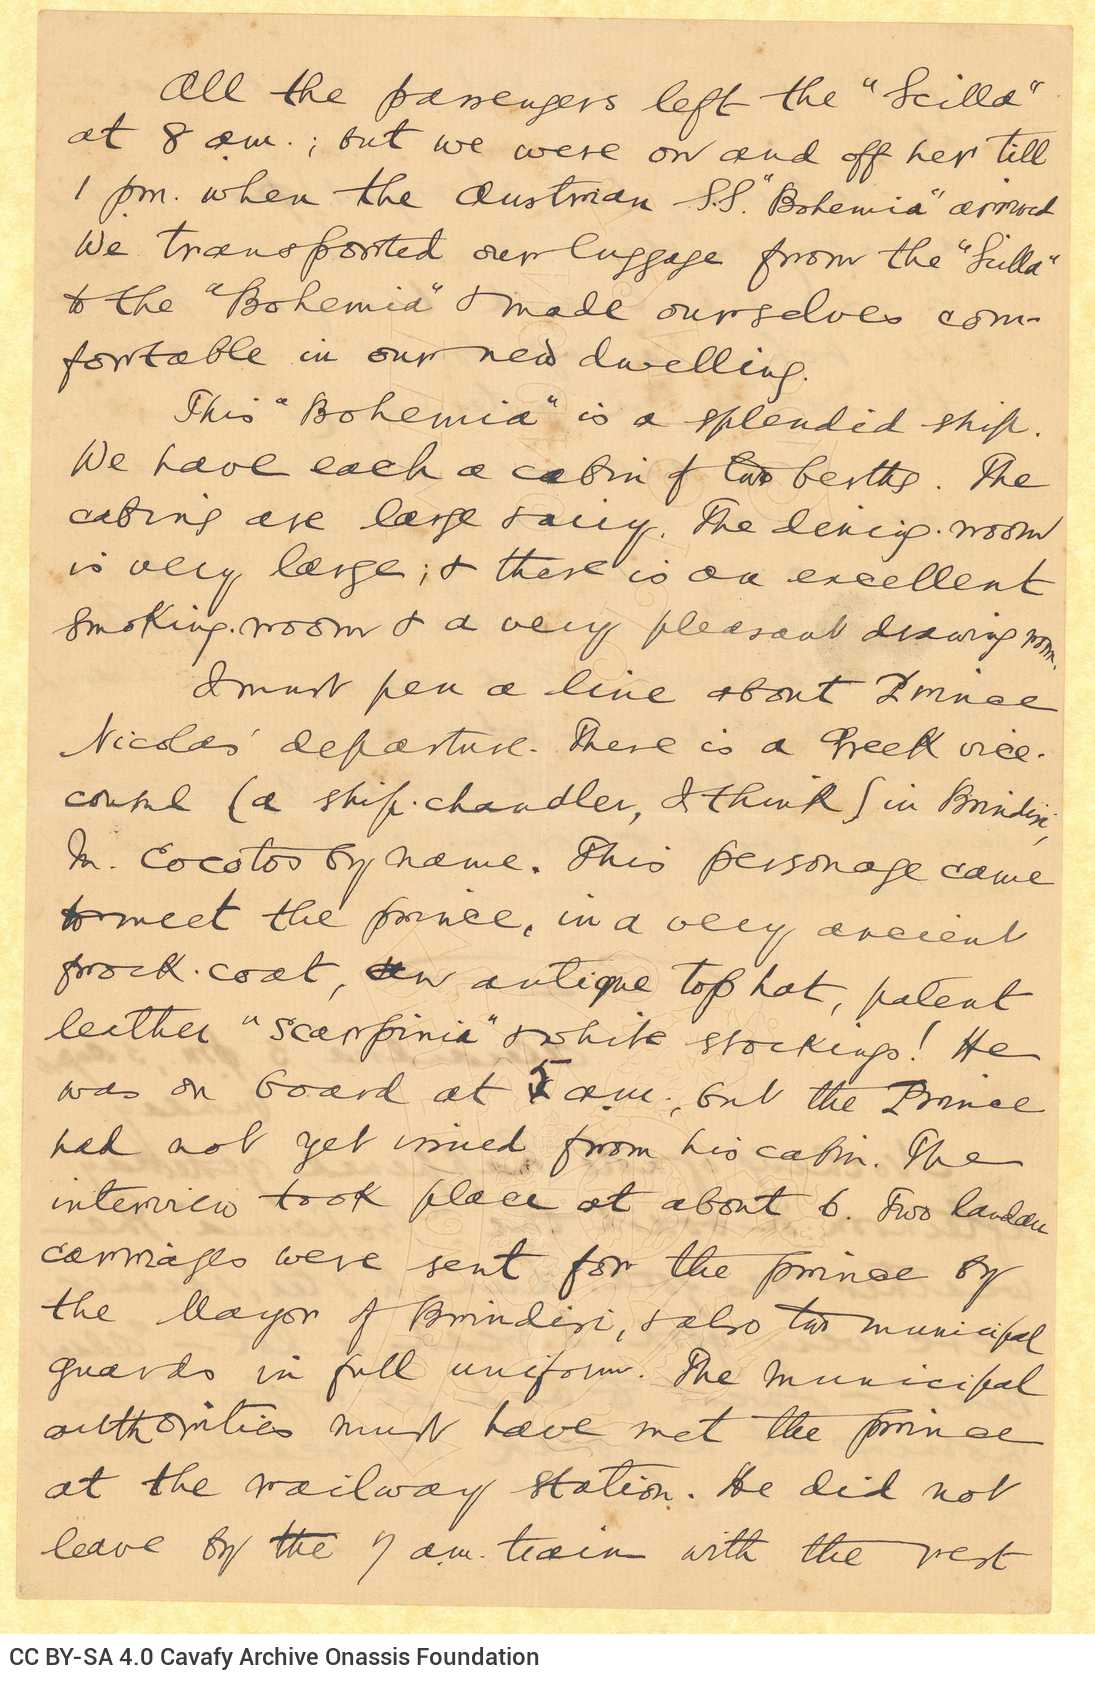 All the passengers left the "Scilla"
at 8 a.m.; but we were on and off her till
1 p.m. when the Austrian S.S. "Bohemia" arrived
We transported our luggage from the "Scilla"
to the "Bohemia" & made ourselves com-
fortable in our new dwelling.
This "Bohemia" is a splendid ship.
We have each a cabin of two berths. The
cabins are large & airy. The dining-room
is very large; & there is an excellent
smoking-room & a very pleasant drawing room.
I must pen a line about Prince
Nicolas' departure. There is a Greek vice-
consul (a ship-chandler, I think) in Brindisi,
M. Cocotos by name. This personage came
to meet the prince, in a very ancient
frock-coat, an antique top hat, patent
leather "scarpinia" & white stockings! He
was on board at 5 a.m., but the Prince
had not yet issued from his cabin. The
interview took place at about 6. Two landau
carriages were sent for the prince by
the Mayor of Brindisi, & also two municipal
guards in full uniform. The municipal
authorities must have met the prince
at the railway station. He did not
leave by the 7 a.m. train with the rest
CC BY-SA 4.0 Cavafy Archive Onassis Foundation